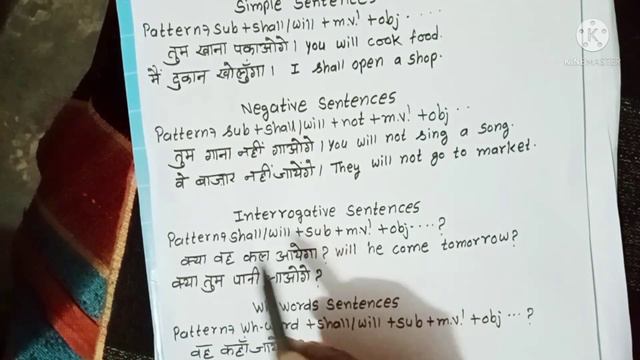 Simple Sentences
Pattern→ Sub + Shall/will + m.v! + obj .....
तुम खाना पकाओगे। You will cook food.
मैं दुकान खोलूँगा। I shall open a shop.
Negative Sentences
Pattern→ Sub + Shall/will + not + m.v! + obj ..
तुम गाना नहीं गाओगे। You will not sing a song.
वे बाजार नहीं जायेंगे। They will not go to market.
Interrogative Sentences
Pattern→ Shall/will + sub + m.v! + obj ....?
क्या वह कल आयेगा? Will he come tomorrow?
क्या तुम पानी लाओगे?
Words Sentences
Pattern→ Wh-word + Shall/will + sub + m.v! + obj ... ?
वह कहाँ
KINEMASTER